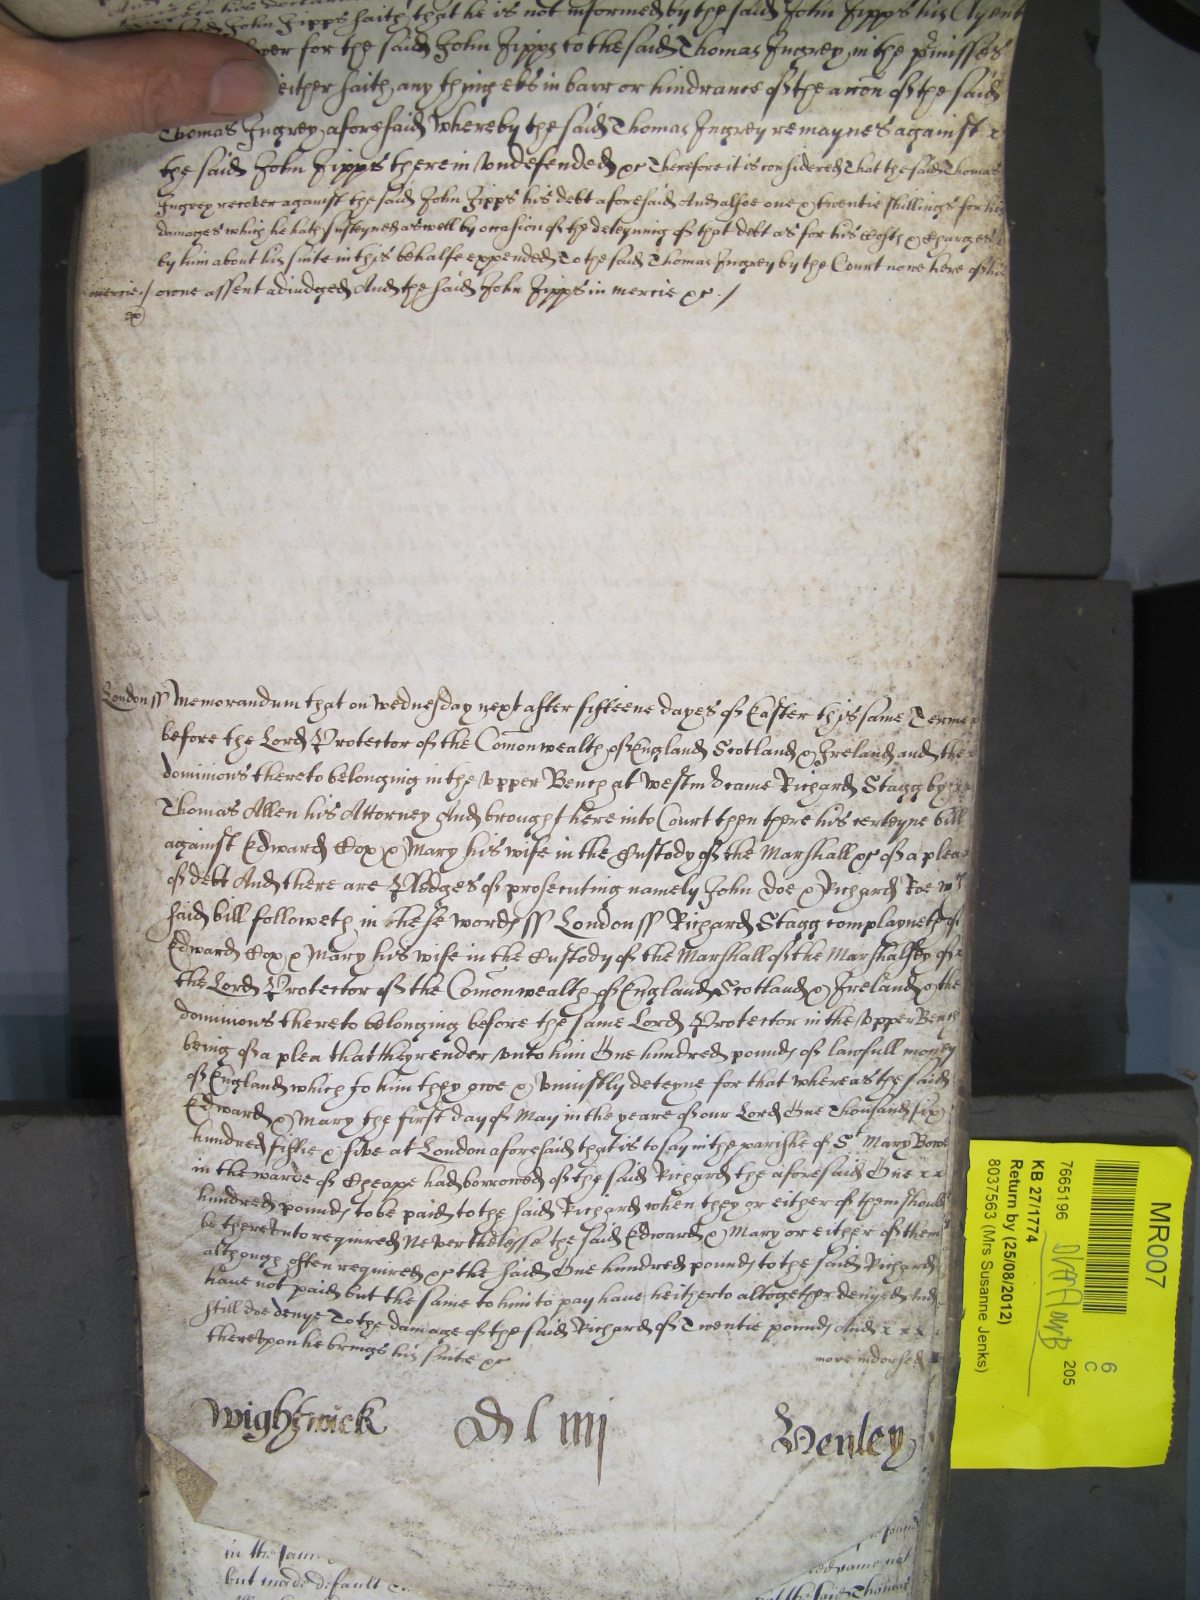 said John Zipps saith that he is not informed by the said John Zipps his Clyent
for the said John Zipps to the said Thomas Ingrey in the p'misses
either saith any thing els in barr or hindrance of the accon of the said
Thomas Ingrey aforesaid whereby the said Thomas Ingrey remaynes against x
the said John Zipps therein vndefended &c Therefore it is considered That the said Thomas
Ingrey recover against the said John Zipps his debt aforesaid And alsoe one & twentie shillings for his
damages which he hath susteyned aswell by occasion of the deteyning of that debt as for his Costs & Charges
by him about his suite in this behalfe expended To the said Thomas Ingrey by the Court nowe here of his
mercie / owne assent adiudged And the said John Zipps in mercie &c /
London ss Memorandum that on Wednesday next after fifteene dayes of Easter this same Terme
before the Lord Protector of the Comonwealth of England Scotland & Ireland and the
dominions thereto belonging in the Vpper Bench at Westm came Richard Stagg by
Thomas Allen his Attorney And brought here into Court then there his certeyne bill
against Edward Cox & Mary his wife in the Custody of the Marshall &c of a plea
of debt And there are Pledges of prosecuting namely John Doe & Richard Roe wch
said bill followeth in these words ss London ss Richard Stagg complayneth of
Edward Cox & Mary his wife in the Custody of the Marshall of the Marshalsey of
the Lord Protector of the Comonwealth of England Scotland & Ireland & the
dominions thereto belonging before the same Lord Protector in the Vpper Bench
being of a plea that they render vnto him One hundred pounds of lawfull money
of England which to him they owe & vniustly deteyne for that whereas the said
Edward & Mary the first day of May in the yeare of our Lord One Thousand six
hundred fiftie & five at London aforesaid that is to say in the parishe of St Mary Bowe
in the warde of Cheape had borrowed of the said Richard the aforesaid One x x
hundred pounds to be paid to the said Richard when they or either of them should
be therevnto required Neverthelesse the said Edward & Mary or either of them
although often required &c the said One hundred pounds to the said Richard
have not paid but the same to him to pay have heitherto altogether denyed And
still doe denye To the damage of the said Richard of Twentie pounds And x x x
therevpon he brings his suite &c
more indorsed
Wightwick
Henley
in the same
but made default
the said Thomas
MR007
6
C
205
7665196
KB 27/1774
Return by (25/08/2012)
8037563 (Mrs Susanne Jenks)